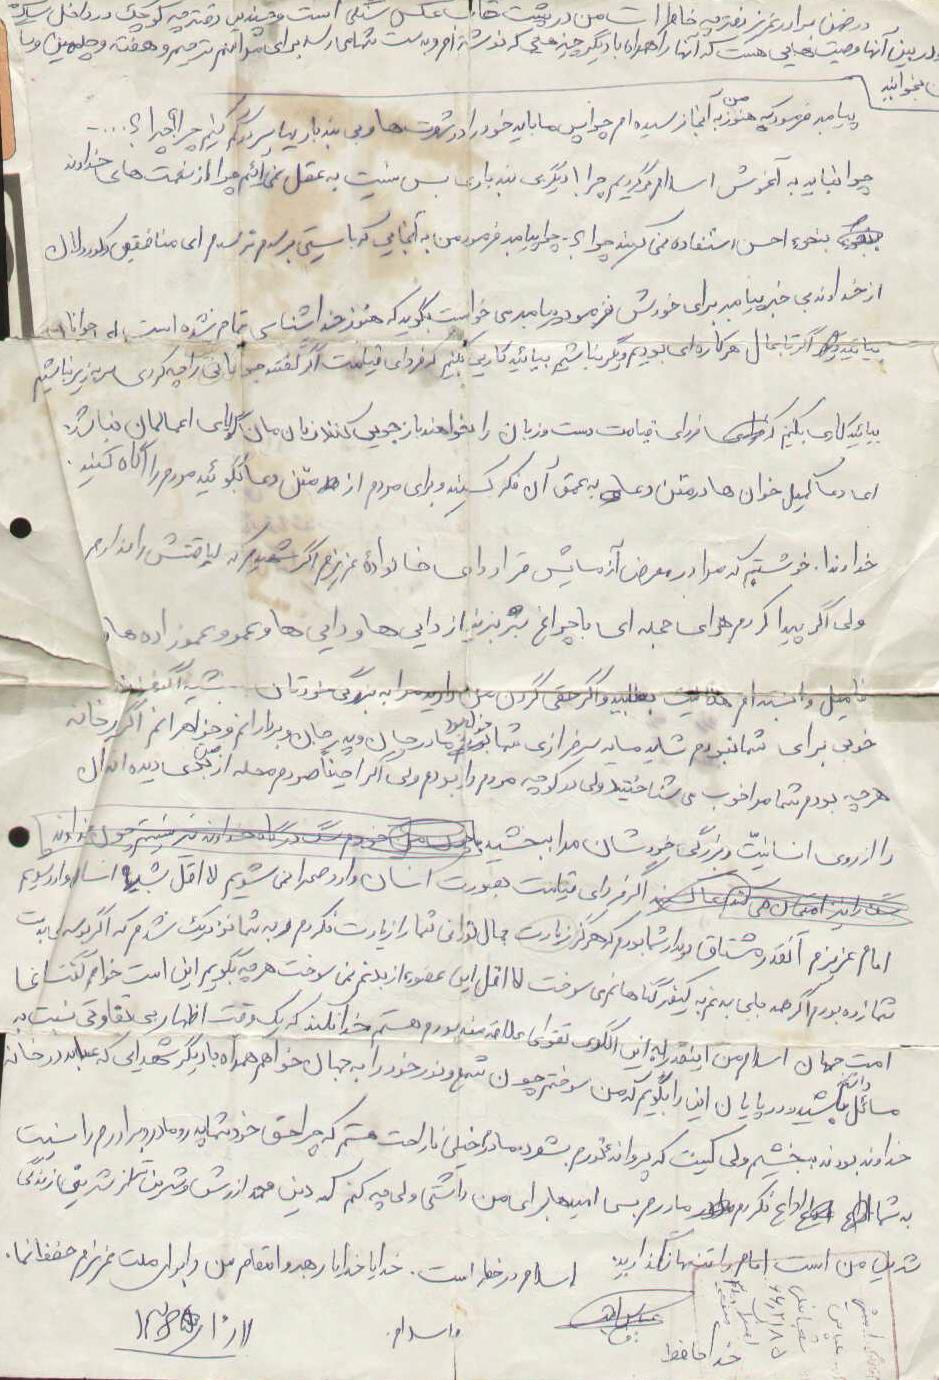 در ضمن برادر عزیز دفترچه خاطرات من در پشت قاب عکس سنگی است و چندین دفترچه کوچک در داخل
و در بین آنها وصیت هایی هست که آنها را همراه با دیگر چیزهایی که نوشته ام و بدست شما می رسد برای شب هفتم و هفته و چهلمین
بخوانید
پیامبر فرمود که من هنوز به آنجا نرسیده ام چرا پس ما باید خود را در شهوت ها و بی بند و باریها سرگرم کنیم چرا؟ چرا؟....
چرا نباید به آغوش اسلام برگردیم چرا دیگر بی بند باری بس نیست به عقل نمی آئیم چرا از نعمت های خداوند
بنحوء احسن استفاده نمی کنید چرا؟ چرا پیامبر فرمود من به آنجایی که بایستی برسم نرسیدم ای منافقین کوردلان
از خداوند بی خبر پیامبر برای خودش نفرمود پیامبر می خواست بگوید که هنوز خداشناسی تمام نشده است ای جوانان
بیائید اگر تا بحال هر کاره ای بودیم دیگر نباشیم بیائید کاری بکنیم که فردای قیامت اگر گفتند جوانی را چه کردی سر به زیر نباشیم
بیائید کاری بکنیم که فردای قیامت دست و زبان را بخواهند بازجویی کنند زبان مان گویای اعمالمان نباشد
ای دعا کمیل خوان ها در متن دعا به عمق آن فکر کنید و برای مردم از متن دعا بگوئید مردم را آگاه کنید.
خداوندا. خوشنودم که مرا در معرض آزمایش قرار دادی خانوادهٔ عزیزم اگر شهید شدم که لیاقتش را ندارم
ولی اگر پیدا کردم برای حجله ای با چراغ نبرید از دایی ها و دایی ها و عمو و عموزاده ها
فامیل و ابسته ام حلالیت بطلبید و اگر حقی گردن من دارید مرا به بزرگی خودتان ببخشید اگر فرزند
خوبی برای شما نبودم شاید مایه سرفرازی شما بودم مادر جان و پدر جان و برادرانم و خواهرانم اگر در خانه
هر چه بودم شما مرا خوب می شناختید ولی در کوچه مردم دار بودم ولی اگر احیاناً مردم محله از من بدی دیده اند آن
را از روی انسانیّت و بزرگی خودشان مرا ببخشید
اگر فردای قیامت بصورت انسان وارد صحرا نمی شویم لااقل شبیه انسان وارد شویم
امام عزیزم آنقدر مشتاق دیدار شما بودم که هرگز زیارت جمال نورانی شما را زیارت نکردم و به شما نزدیک نشدم که اگر بوسه ای بدست
شما زده بودم اگر همه جای بدنم به کیفر گناهانم می سوخت لااقل این عضوء از بدنم نمی سوخت هر چه بگویم این است خواهم گفت شما
امت جهان اسلام من اینقدر به این الگوی تقوا علاقه مند بودم و هستم خدا نکند که یک وقت اظهار بی تفاوتی نسبت به
مسائل داشته باشید و در پایان این را بگویم که من سوختم چون شمع و نور خود را به جهان خواهم همراه با دیگر شهدایی که عباد در خانه
خداوند بودند بخشیم ولی کیست که پروانه نورم بشود مادر خیلی ناراحت هستم که چرا حق خود شما پدر و مادر و برادرم را نسبت
به شما اداء نکردم مادرم بسی امیدها برای من داشتی ولی چه کنم که دین محمد ارزش و شریفتر از شریفی زندگی
شریف من است امام را تنها نگذارید. اسلام در خطر است. خدایا خدایا رهبر و امام من و ایران ملت عزیزم حفظ نما.
والسلام.
خدا حافظ